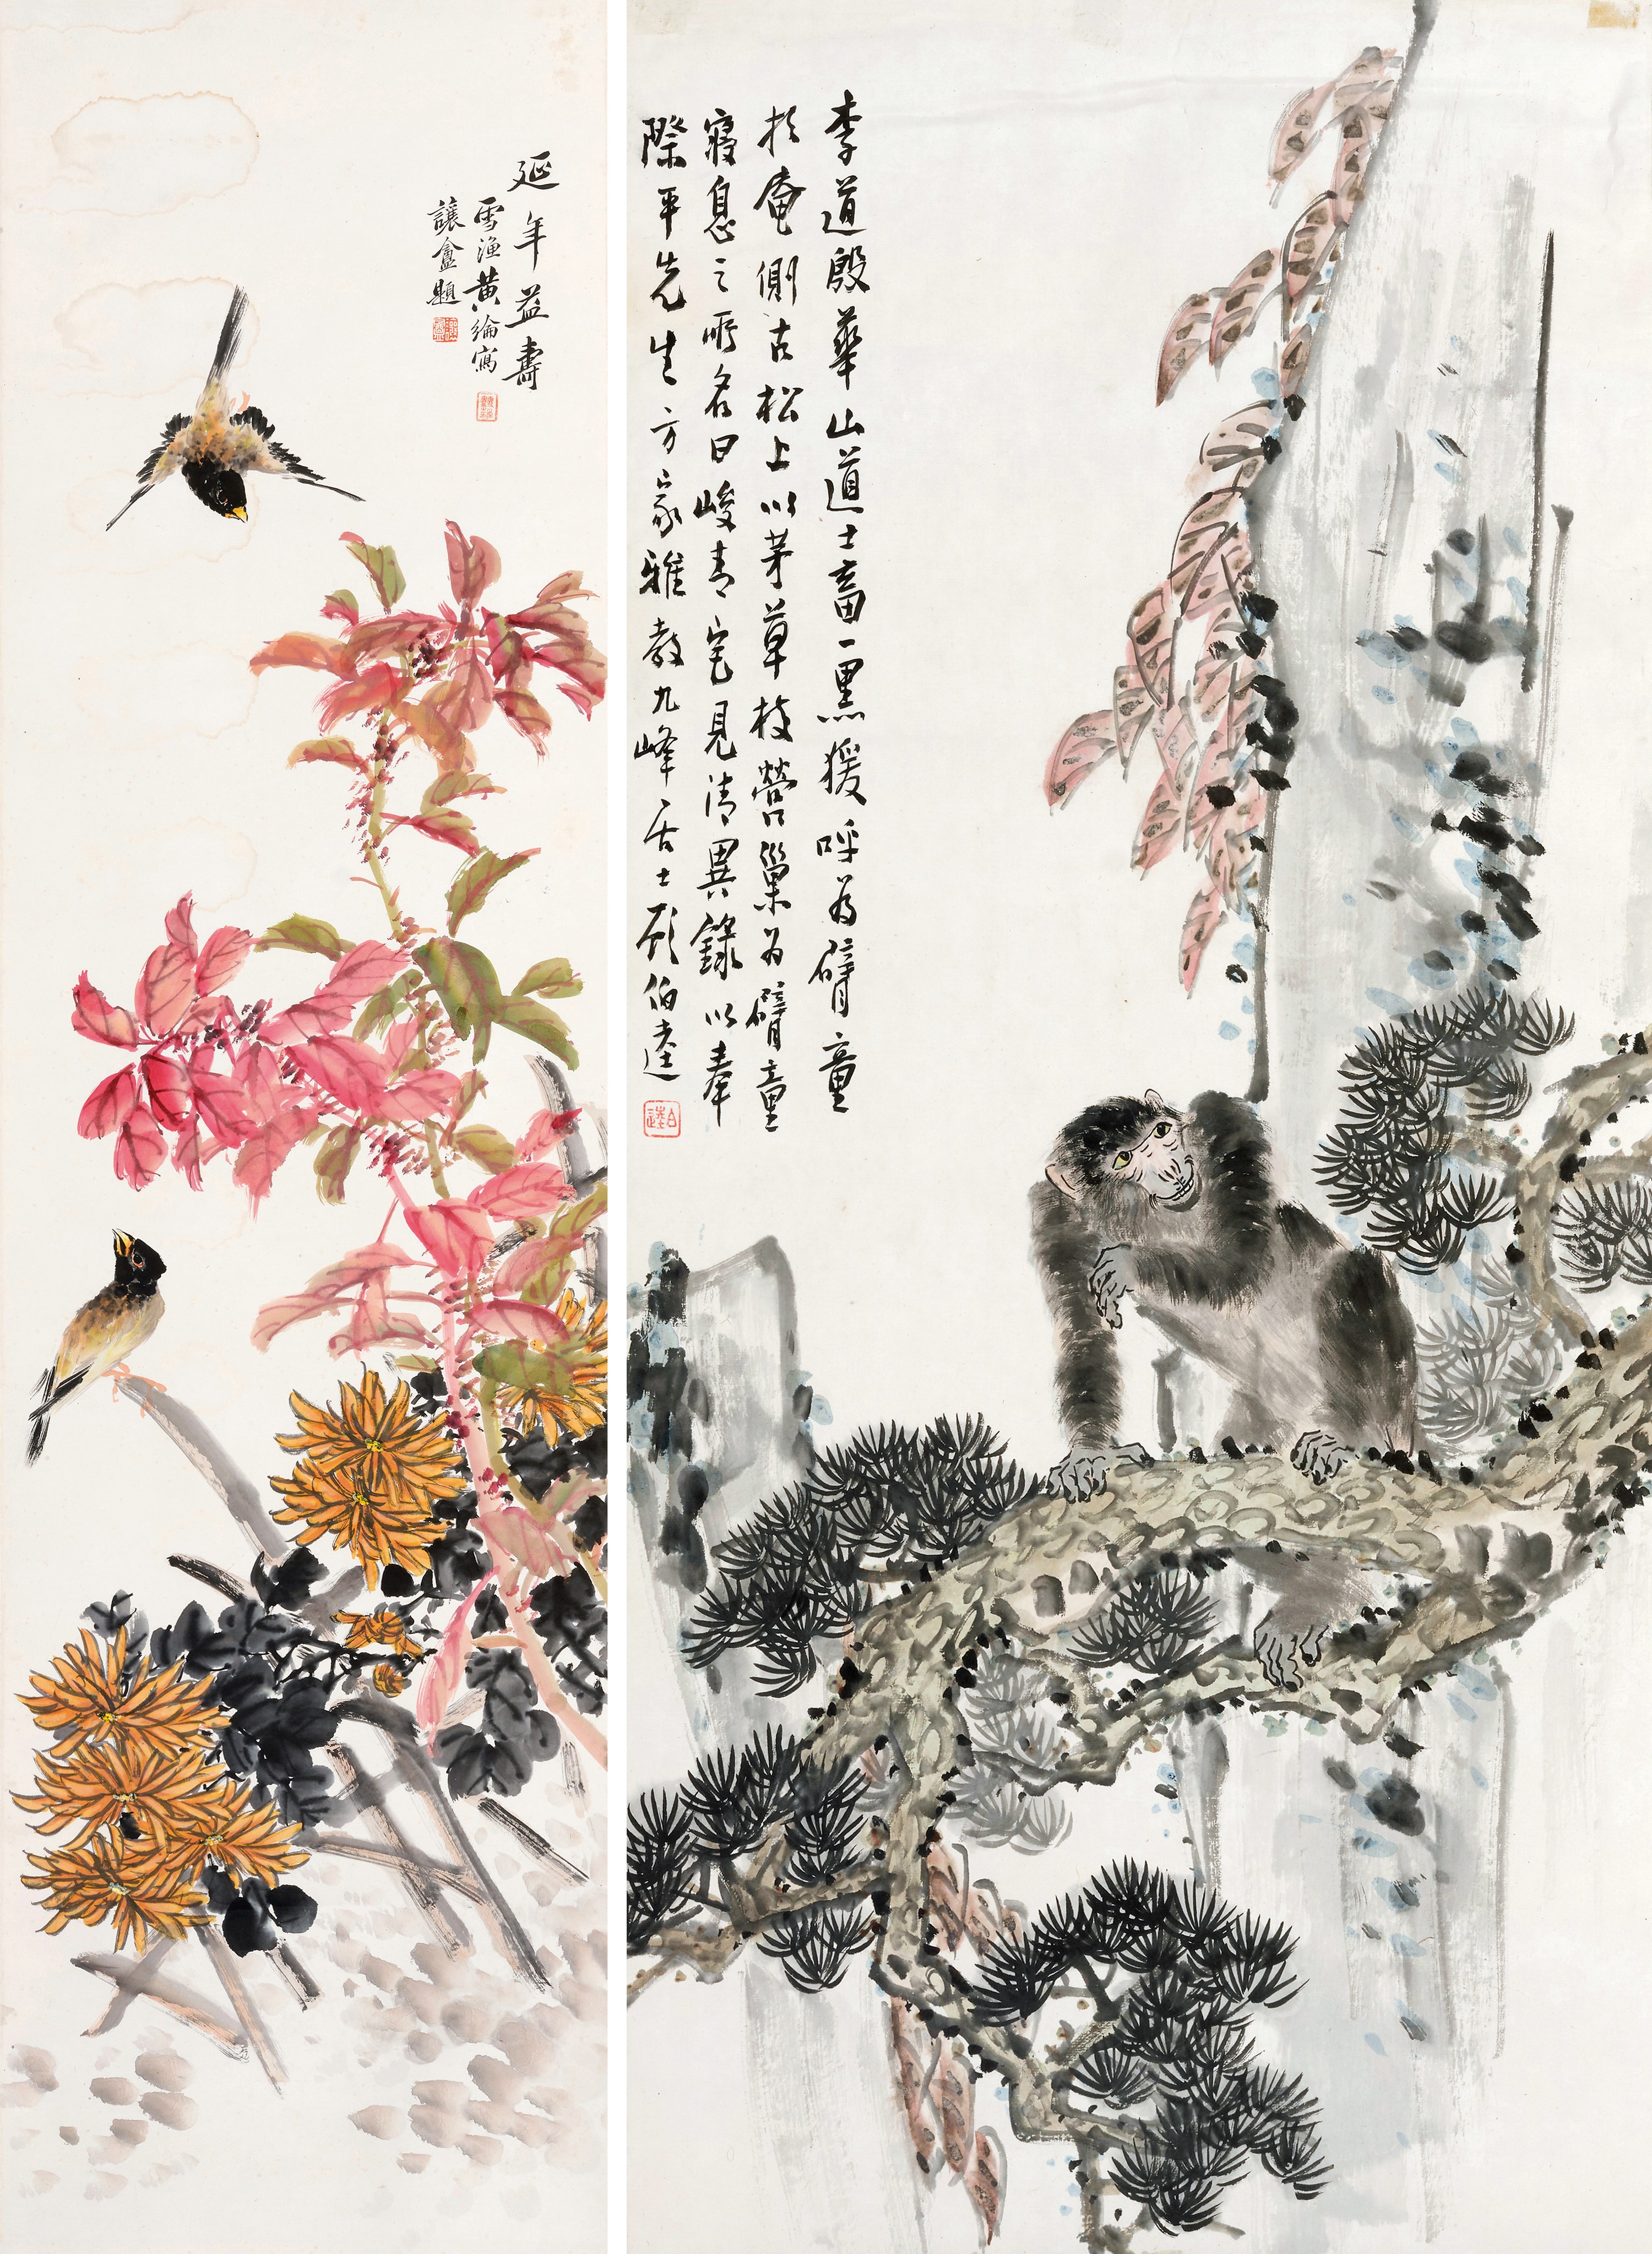 延年益壽
雪漁黃綸寫
讓盦題
李道殷華山道士畜一黑猨呼為臂童
於庵側古松上以茅草枝營巢為臂童
寢息之所名曰峻青宅見清異錄以奉
際平先生方家雅教九峰居士顧伯逵
伯逵